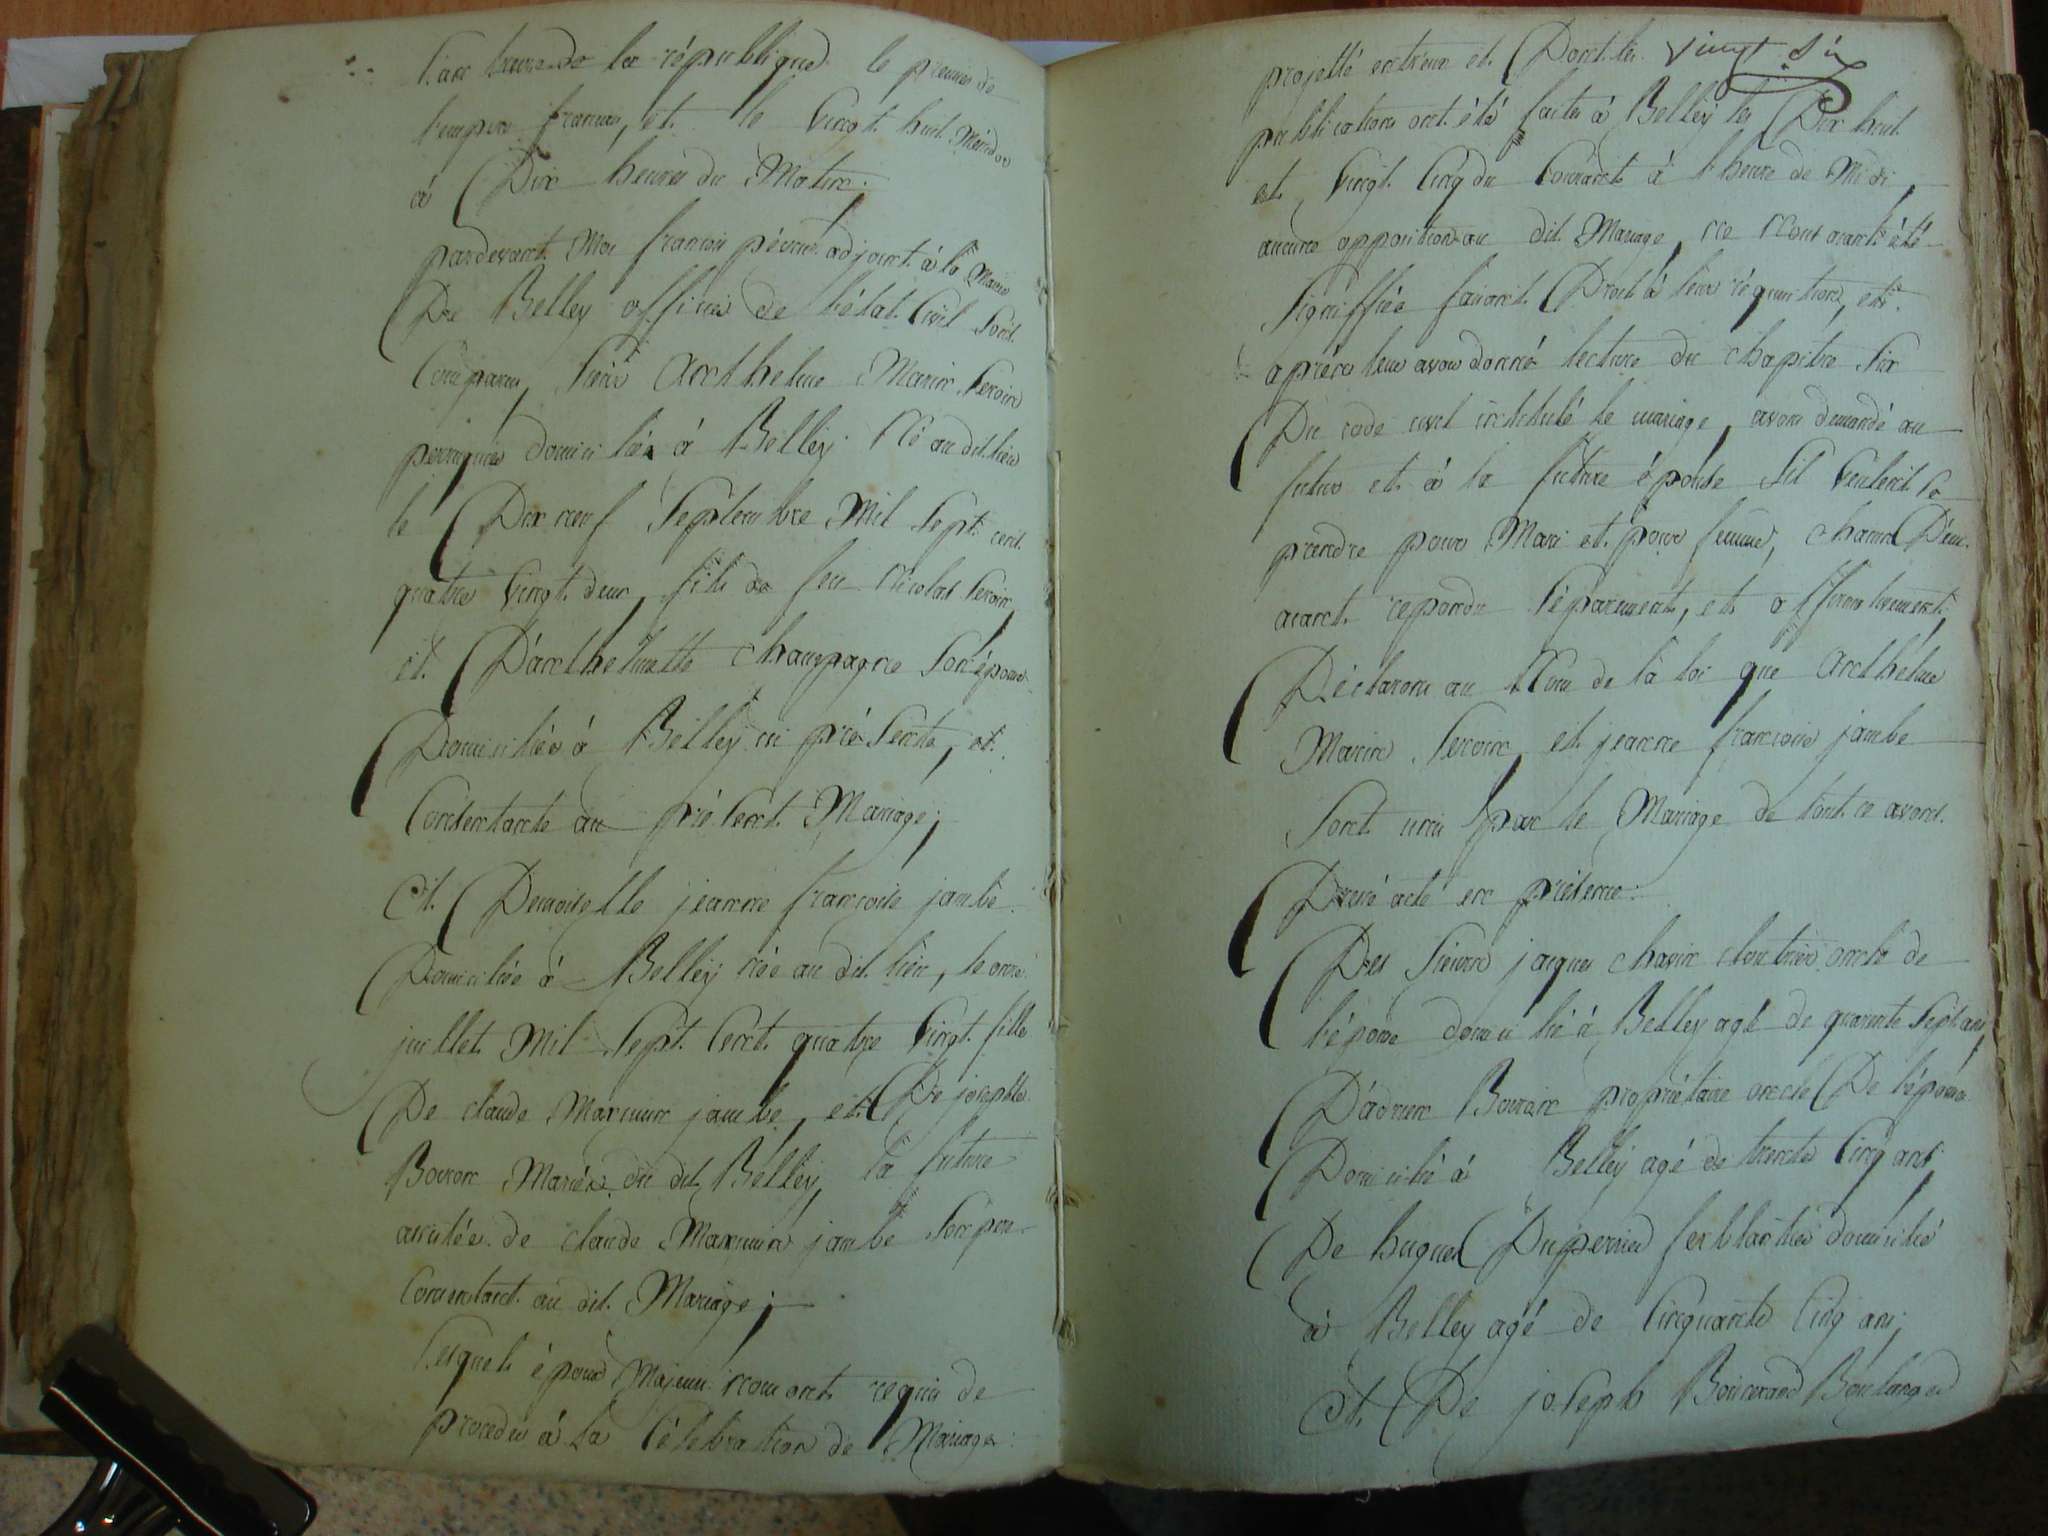 L'an treize de la république le premier de
l'empire francais, et le Vingt huit Méssidor
à Dix heures du Matin;
pardevant Moi francois adjoint à la Mairie
De Belley officier de l'état Civil Sont
Comparus, Sieur Anthelme Marin Peroin
perruquier domicilié à Belley Né au dit lieu
le Dix neuf Septembre Mil Sept cent
quatre Vingt deux, fils de feu Nicolas Peroin,
et D'anthelmette Champagne Son épouse
Domiciliée à Belley ici présente, et
Consentante au présent Mariage;
Et Demoiselle jeanne francoise jambe
Domiciliée à Belley née au dit lieu, le onze
juillet Mil Sept Cent quatre Vingt fille
De claude Marcunin jambe, et De josephte
Bouron Mariés du dit Belley, la future
assistée de claude jambe Son père
Consentant au dit Mariage;
Lesquels époux Majeurs nous ont requis de
procéder à la Célébration de Mariage
projetté entreux et Dont les vingt Six
publications ont été faites à Belley les Dix huit
et Vingt Cinq du Courant à l'heure de Midi,
aucune opposition au dit Mariage, ne Nous ayant été
Signiffiée faisant Droit à leur réquisition, et
aprées leur avoir donné lecture du chapitre Six
Du code civil intitulé le mariage, avons demandé au
futur et à la future épouse Sil Veulent Se
prendre pour Mari et pour femme, chacun D'eux
aiant repondu Séparement, et affirmativement,
Déclarons au Nom de la loi que Anthelme
Marin Peroin, et jeanne francoise jambe
Sont unis par le Mariage de tout ce avons
Dressé acte en présence
Des Sieurs jaques chavin cloutrier oncle de
l'épouse domicilié à Belley agé de quarante Sept ans,
D'adrien Bouron propriétaire oncle De l'épouse
Domicilié à Belley agé de trente Cinq ans,
De hugues Duperrier ferblantier domicilié
à Belley agé de Cinquante Cinq ans,
Et De joseph Boulanger